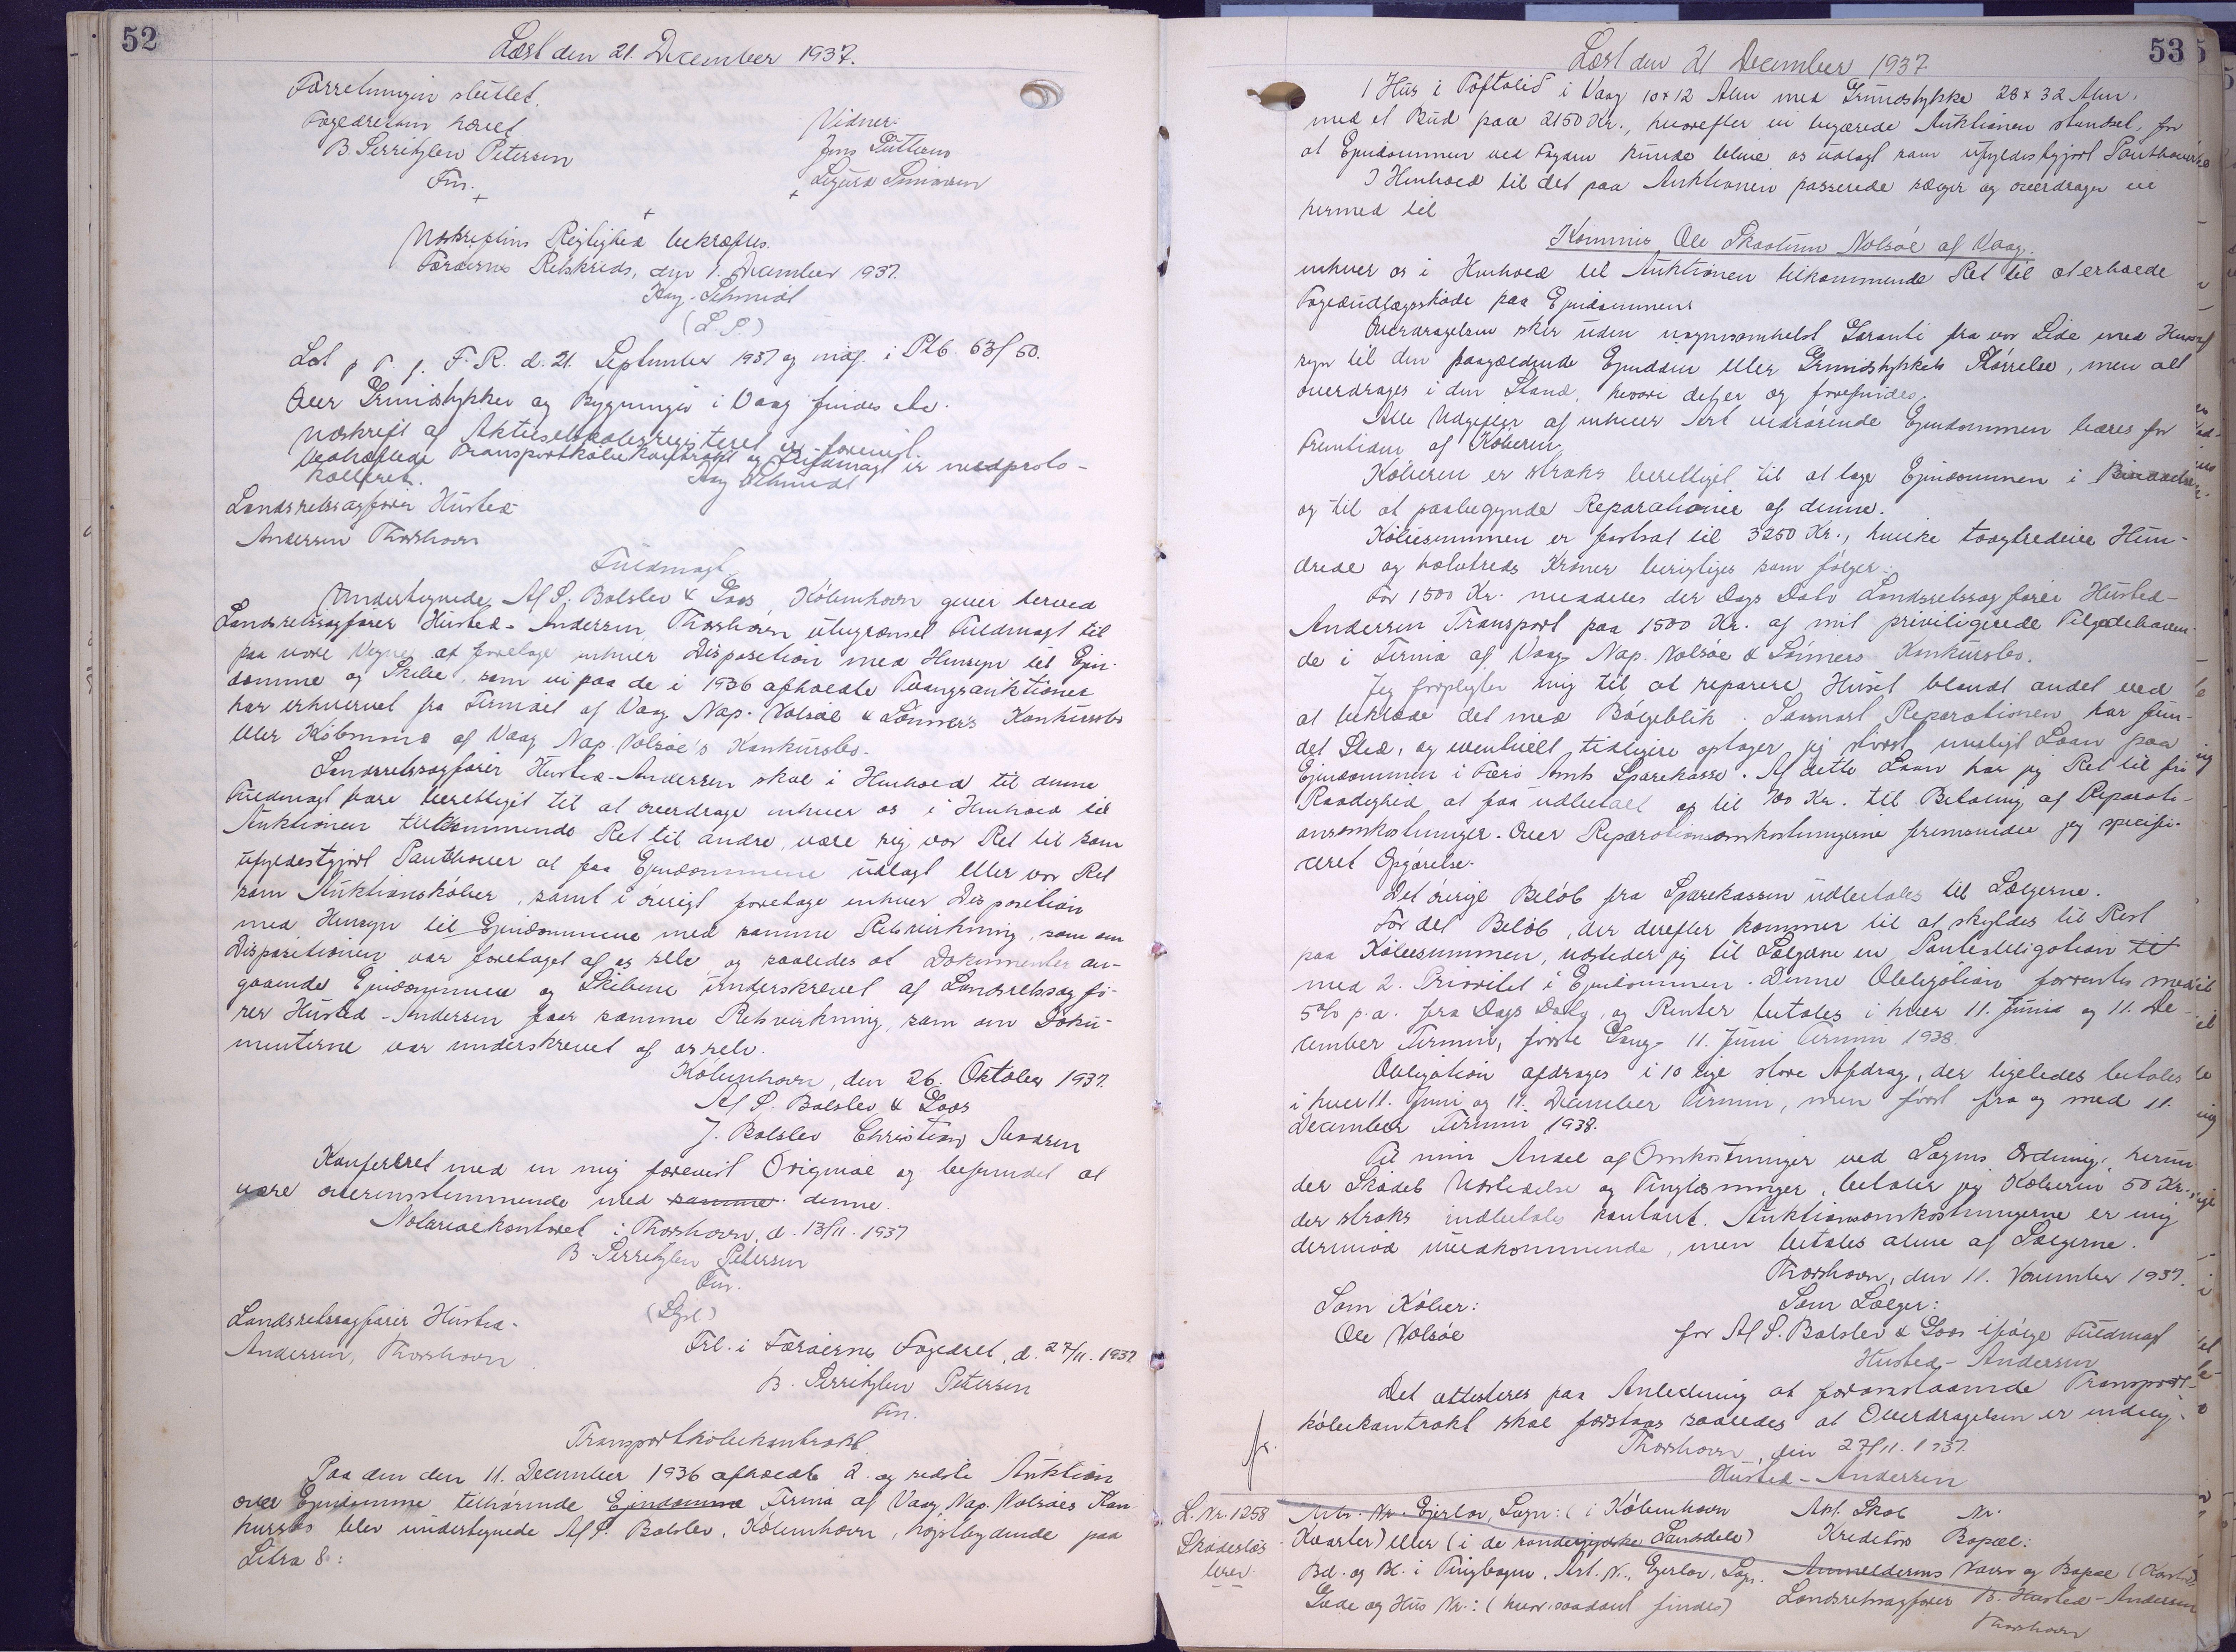 52
Læst den 21. December 1937.
Forretningen sluttet.
Fogedretten hævet
B. Serritzlew Petersen
Fm.
Vidner:
Jens
Udskriftens Rigtighed bekræftes.
Færøernes Retskreds, den 1. December 1937.
Kay-Schmidt
(L.S.)
Læst p T. f. F. R. d. 21. September 1937 og indf. i Ptb. 63/50.
Over Grundstykker og Bygninger i Vaag findes
Udskrift af Aktieselskabsregisteret er forevist.
Vedhæftede Transportkøbekontrakt og Fuldmagt er medproto-
kolleret.
Kay Schmidt
Landsretssagfører Husted-
Andersen Thorshavn
Fuldmagt
Undertegnede A/S. Balslev & Goos, København giver herved
Landsretssagfører Husted-Andersen, Thorshavn ubegrænset Fuldmagt til
paa vore Vegne at foretage enhver Disposition med Hensyn til Ejen-
domme og Skibe, som vi paa de i 1936 afholdte Tvangsauktioner
har erhvervet fra Firmaet af Vaag Nap. Nolsøe & Sønners Konkursbo
eller Købmand af Vaag Nap. Nolsøe's Konkursbo.
Landsretssagfører Husted-Andersen skal i Henhold til denne
Fuldmagt være berettiget til at overdrage enhver os i Henhold til
Auktionen tilkommende Ret til andre, være sig vor Ret til som
ufyldestgjort Panthaver at faa Ejendommene udlagt eller vor Ret
som Auktionskøber, samt i øvrigt foretage enhver Disposition
med Hensyn til Ejendommene med samme Retsvirkning, som om
Dispositionen var foretaget af os selv, og saaledes at Dokumenter an-
gaaende Ejendommene og Skibene underskrevet af Landsretssagfø-
rer Husted-Andersen faar samme Retsvirkning, som om Doku-
menterne var underskrevet af os selv.
København, den 26. Oktober 1937.
A/S. Balslev & Goos
J. Balslev Christian Madsen
Konfereret med en mig forevist Original og befundet at
være overensstemmende med samme denne.
Notarialkontoret i Thorshavn, d. 13/11. 1937
B Serritzlew Petersen
Fm.
(Sgl)
Landsretssagfører Husted-
Andersen, Thorshavn.
Frl. i Færøernes Fogedret, d. 27/11. 1937
B. Serritzlew Petersen
Fm.
Transportkøbekontrakt.
Paa den den 11. December 1936 afholdt 2. og sidste Auktion
over Ejendomme tilhørende Ejendomme Firma af Vaag Nap. Nolsøes Kon-
kursbo blev undertegnede A/S. Balslev, København, højstbydende paa
Litra 8:
53
Læst den 21 December 1937.
1 Hus i Toftalid i Vaag 10 x 12 Alen med Grundstykke 28 x 32 Alen,
med et Bud paa 2150 Kr., hvorefter vi begærede Auktionen standset, for
at Ejendommen ved Fogden kunde blive os udlagt som ufyldestgjort Panthaver.
I Henhold til det paa Auktionen passerede sælger og overdrager vi
hermed til
Kommis Ole Skaalum Nolsøe af Vaag.
enhver os i Henhold til Auktionen tilkommende Ret til at erholde
Fogedudlægsskøde paa Ejendommen.
Overdragelsen sker uden nogensomhelst Garanti fra vor Side med Hen-
syn til den paagældende Ejendom eller Grundstykkets Størrelse, men alt
overdrages i den Stand, hvori det er og forefindes.
Alle Udgifter af enhver Art vedrørende Ejendommen bæres for
Fremtiden af Køberen.
Køberen er straks berettiget til at tage Ejendommen i Besiddelse
og til at paabegynde Reparationer af denne.
Købesummen er fastsat til 3250 Kr., hvilke toogtredive Hun-
drede og halvtreds Kroner berigtiges som følger:
For 1500 Kr. meddeles der Dags Dato Landsretssagfører Husted-
Andersen Transport paa 1500 Kr. af mit priviligerede Tilgodehaven-
de i Firma af Vaag Nap. Nolsøe & Sønners Konkursbo.
Jeg forpligter mig til at reparere Huset blandt andet ved
at beklæde det med Bølgeblik. Saasnart Reparationen har fun-
det Sted, og eventuelt tidligere optager jeg størst muligt Laan paa
Ejendommen i Færø Amts Sparekasse. Af dette Laan har jeg Ret til fri
Raadighed at faa udbetalt op til 700 Kr. til Betaling af Reparati-
onsomkostninger. Over Reparationsomkostningerne fremsender jeg specifi-
ceret Opgørelse.
Det øvrige Beløb fra Sparekassen udbetales til Sælgerne.
For det Beløb, der derefter kommer til at skyldes til Rest
paa Købesummen, udsteder jeg til Sælgerne en Panteobligation til
med 2. Prioritet i Ejendommen. Denne Obligation forrentes med
5% p.a. fra Dags Dato, og Renter betales i hver 11. Juni og 11. De-
cember Termin, første Gang 11. Juni Termin 1938.
Obligation afdrages i 10 lige store Afdrag, der ligeledes betales
i hver 11. Juni og 11. December Termin, men først fra og med 11.
December Termin 1938.
Til min Andel af Omkostninger ved Sagens Ordning, herun-
der Skødets Udstedelse og Tinglæsninger, betaler jeg Køberen 50 Kr.,
der straks indbetales kontant. Auktionsomkostningerne er mig
derimod uvedkommende, men betales alene af Sælgerne.
Thorshavn, den 11. November 1937.
Som Køber:
Ole Nolsøe
Som Sælger:
for A/S. Balslev & Goos ifølge Fuldmagt
Husted-Andersen
Det attesteres paa Anledning at foranstaaende Transport-
købekontrakt skal forstaas saaledes at Overdragelsen er endelig.
Thorshavn, den 27/11. 1937.
Husted-Andersen
L. Nr. 1258
Skadesløs
brev.
Matr. Nr. Ejerlav, Sogn: (i København
Kvarter) eller (i de sønderjydske Landsdele)
Bd. og Bl. i Tingbogen, Art. Nr., Ejerlav, Sogn.
Gade og Hus Nr.: (hvor saadant findes)
Akt. Skab Nr.
Kreditors Bopæl:
Anmelderens Navn og Bopæl
Landsretssagfører B. Husted-Andersen
Thorshavn